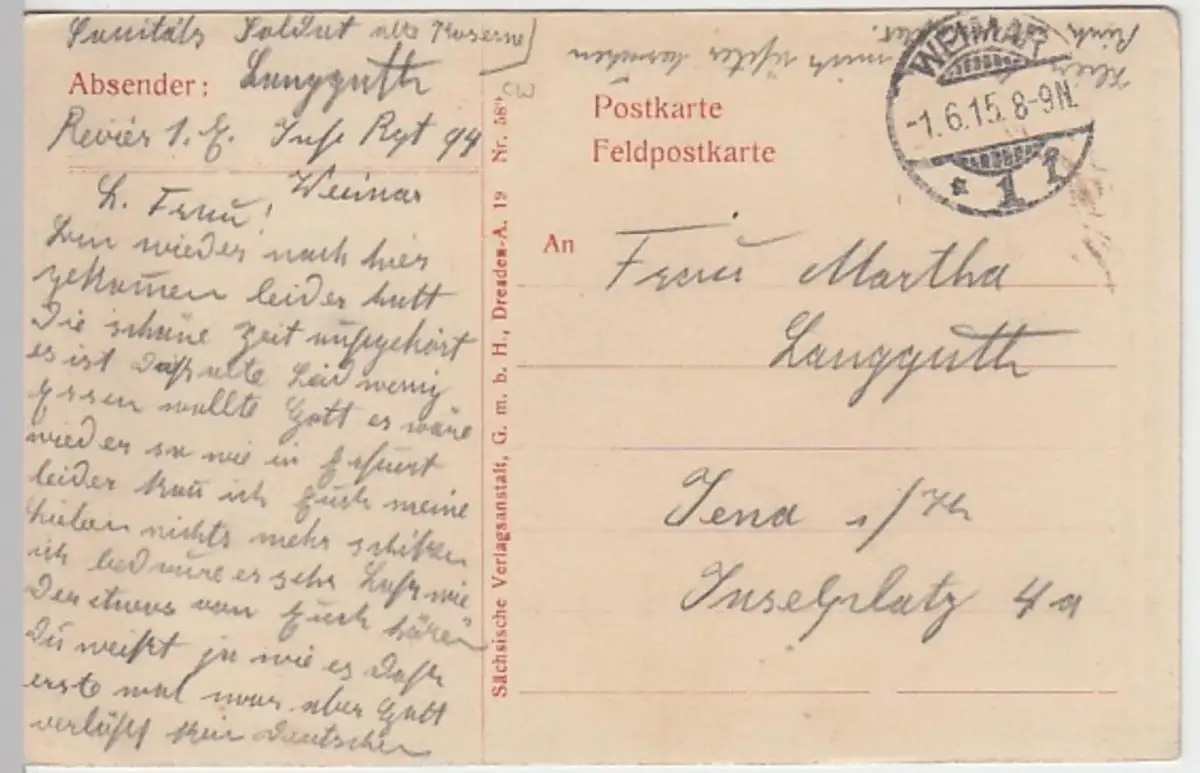 Sanitäts Soldat alte Kaserne
Absender: Langguth
Revier 1. E. Inf. Rgt 94
Weimar
L. Frau!
bin wieder nach hier
gekom̄en leider hatt
die schöne Zeit aufgehört
es ist daß alte Leid wenig
Essen wollte Gott es wäre
wieder so wie in Erfurt
leider kan̄ ich Euch meine
Lieben nichts mehr schiken
ich bedaure es sehr Laß wie
der etwas von Euch hören
Du weißt ja wie es daß
erste mal war aber Gott
verläßt kein Deutschen
Sächsische Verlagsanstalt, G. m. b. H., Dresden-A. 19 Nr. 58
Postkarte
Feldpostkarte
WEIMAR
-1.6.15. 8-9N.
* 1 1
An Frau Martha
Langguth
Jena i/Th
Inselplatz 4a